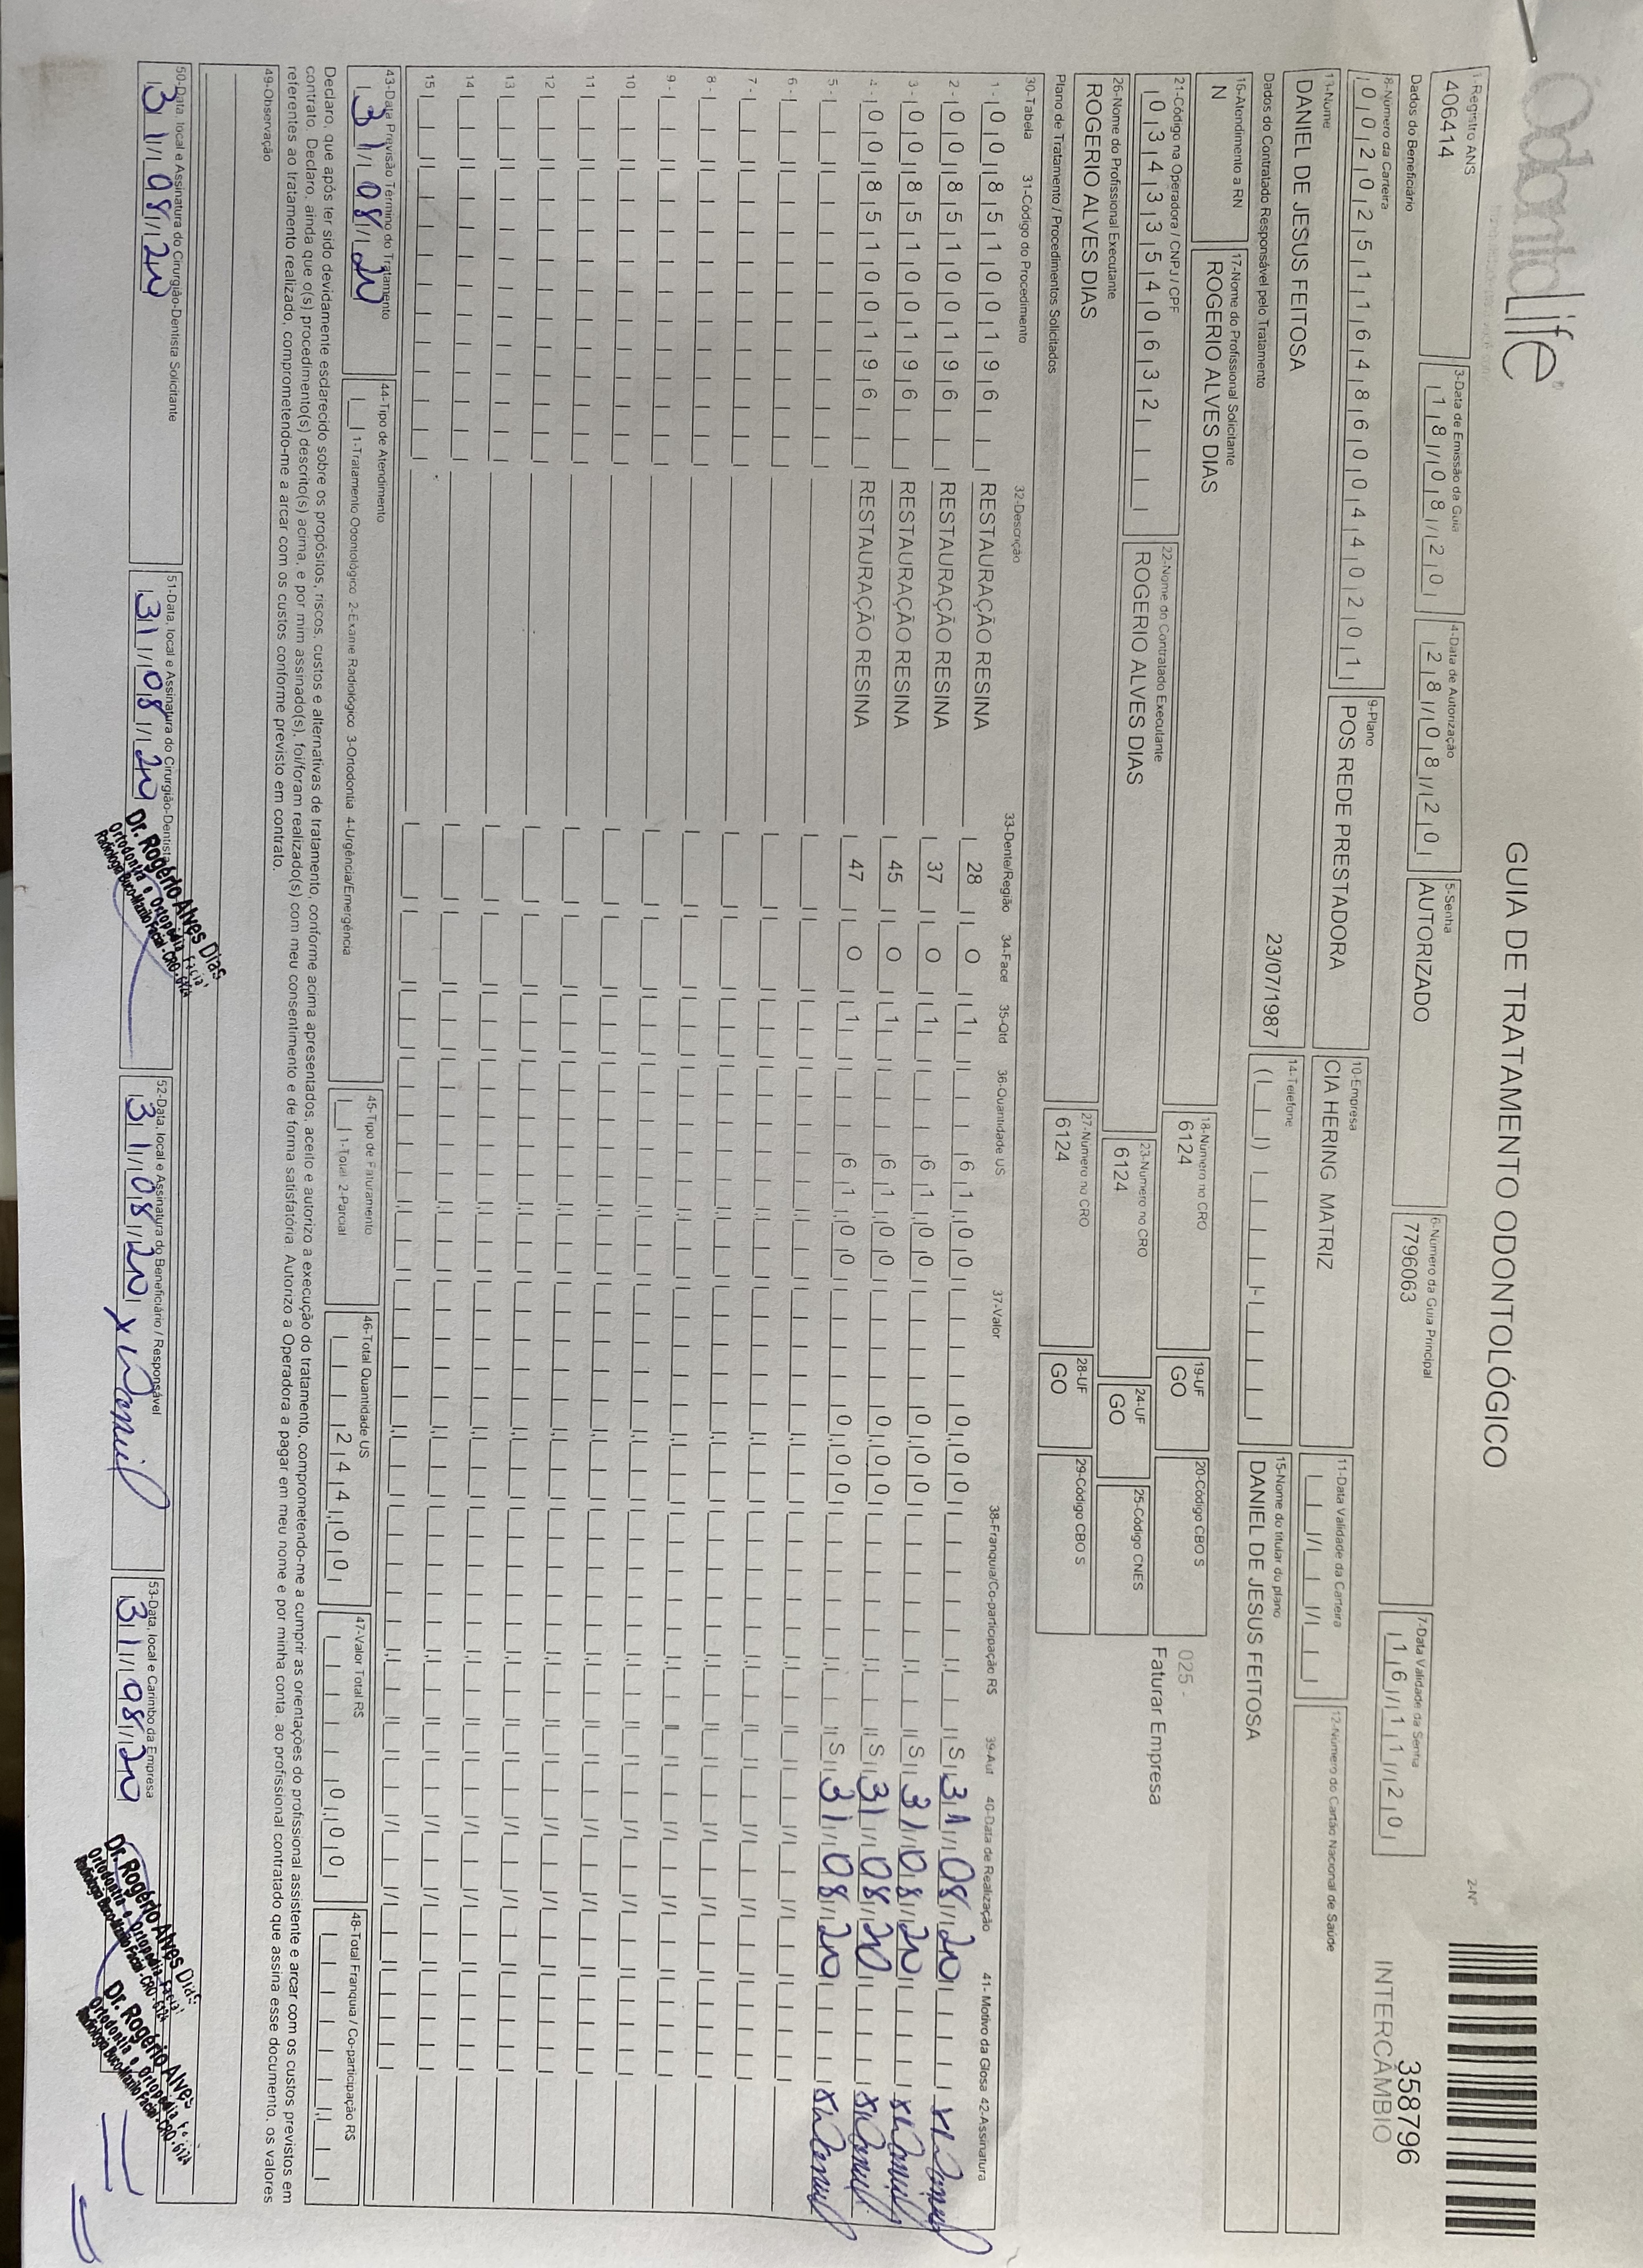 OdontoLife
GUIA DE TRATAMENTO ODONTOLÓGICO
2-Nº
358796
INTERCÂMBIO
1-Registro ANS
406414
3-Data de Emissão da Guia
18/08/20
4-Data de Autorização
28/08/20
5-Senha
AUTORIZADO
6-Número da Guia Principal
7796063
7-Data Validade da Senha
16/11/20
Dados do Beneficiário
8-Número da Carteira
00202511648600440201
9-Plano
POS REDE PRESTADORA
10-Empresa
CIA HERING MATRIZ
11-Data Validade da Carteira
12-Número do Cartão Nacional de Saúde
13-Nome
DANIEL DE JESUS FEITOSA
23/07/1987
14-Telefone
15-Nome do titular do plano
DANIEL DE JESUS FEITOSA
Dados do Contratado Responsável pelo Tratamento
16-Atendimento a RN
N
17-Nome do Profissional Solicitante
ROGERIO ALVES DIAS
18-Número no CRO
6124
19-UF
GO
20-Código CBO S
025 -
Faturar Empresa
21-Código na Operadora / CNPJ / CPF
03433540632
22-Nome do Contratado Executante
ROGERIO ALVES DIAS
23-Número no CRO
6124
24-UF
GO
25-Código CNES
26-Nome do Profissional Executante
ROGERIO ALVES DIAS
27-Número no CRO
6124
28-UF
GO
29-Código CBO S
Plano de Tratamento / Procedimentos Solicitados
30-Tabela 31-Código do Procedimento 32-Descrição 33-Dente/Região 34-Face 35-Qtd 36-Quantidade US 37-Valor 38-Franquia/Co-participação R$ 39-Aut 40-Data de Realização 41- Motivo da Glosa 42-Assinatura
1- 00 85100196 RESTAURAÇÃO RESINA 28 O 1 61,00 0,00 S 31/08/20 x Daniel
2- 00 85100196 RESTAURAÇÃO RESINA 37 O 1 61,00 0,00 S 31/08/20 x Daniel
3- 00 85100196 RESTAURAÇÃO RESINA 45 O 1 61,00 0,00 S 31/08/20 x Daniel
4- 00 85100196 RESTAURAÇÃO RESINA 47 O 1 61,00 0,00 S 31/08/20 x Daniel
5-
6-
7-
8-
9-
10
11
12
13
14
15
43-Data Previsão Término do Tratamento
31/08/20
44-Tipo de Atendimento
1-Tratamento Odontológico 2-Exame Radiológico 3-Ortodontia 4-Urgência/Emergência
45-Tipo de Faturamento
1-Total 2-Parcial
46-Total Quantidade US
244,00
47-Valor Total R$
0,00
48-Total Franquia / Co-participação R$
Declaro, que após ter sido devidamente esclarecido sobre os propósitos, riscos, custos e alternativas de tratamento, conforme acima apresentados, aceito e autorizo a execução do tratamento, comprometendo-me a cumprir as orientações do profissional assistente e arcar com os custos previstos em
contrato. Declaro, ainda que o(s) procedimento(s) descrito(s) acima, e por mim assinado(s), foi/foram realizado(s) com meu consentimento e de forma satisfatória. Autorizo a Operadora a pagar em meu nome e por minha conta, ao profissional contratado que assina esse documento, os valores
referentes ao tratamento realizado, comprometendo-me a arcar com os custos conforme previsto em contrato.
49-Observação
50-Data, local e Assinatura do Cirurgião-Dentista Solicitante
31/08/20
51-Data, local e Assinatura do Cirurgião-Dentista
31/08/20
Dr. Rogério Alves Dias
Ortodontia e Ortopedia Facial
Radiologia Buco-Maxilo Facial - CRO - 6124
52-Data, local e Assinatura do Beneficiário / Responsável
31/08/20 x Daniel
53-Data, local e Carimbo da Empresa
31/08/20
Dr. Rogério Alves Dias
Ortodontia e Ortopedia Facial
Radiologia Buco-Maxilo Facial - CRO - 6124
Dr. Rogério Alves
Ortodontia e Ortopedia Fa
Radiologia Buco-Maxilo Facial - CRO - 6124